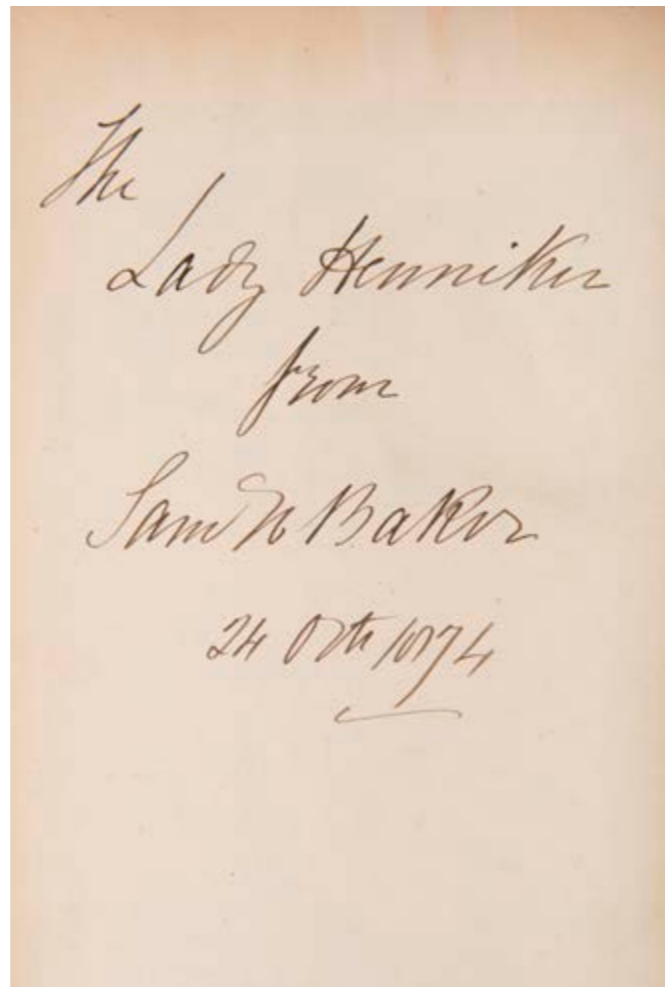 The
Lady Henniker
from
Saml W Baker
24 Oct 1874